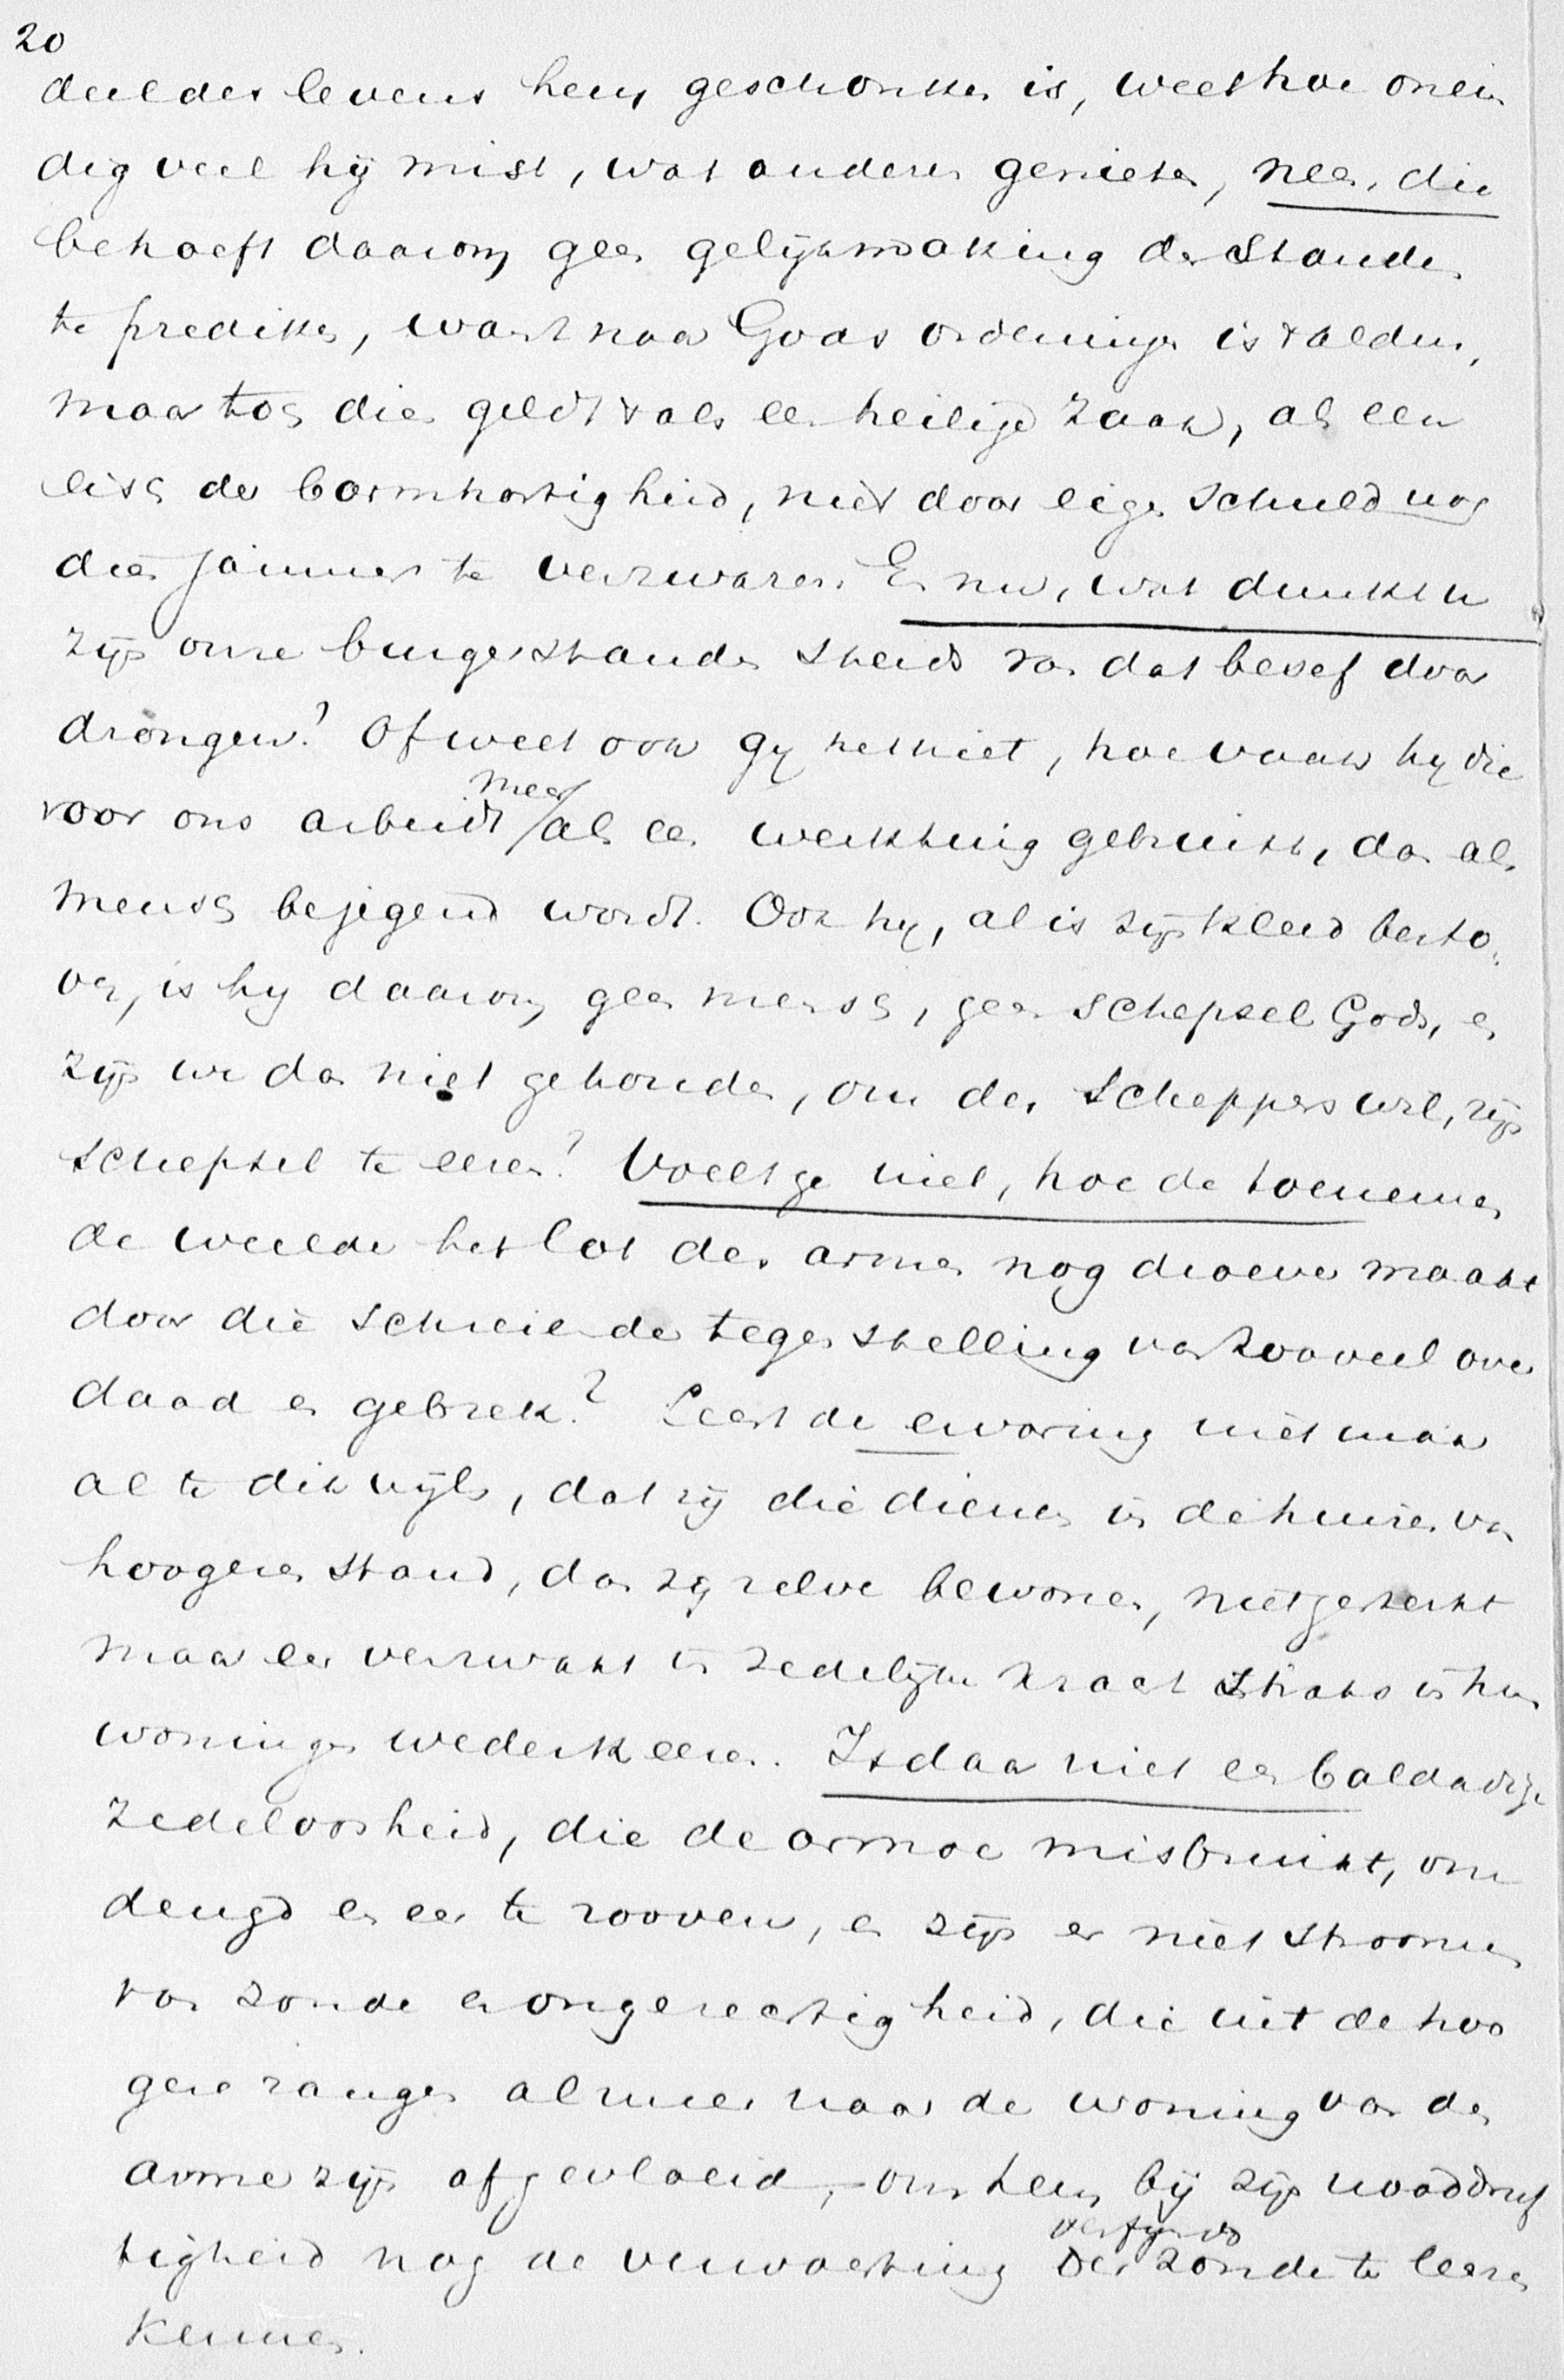 20
deel des levens hem geschonken is, weet hoe onein
dig veel hij mist, wat anderen genieten, neen, die
behoeft daarom geen gelijkmaking der Standen
te prediken, want naar Gods ordeningen is 't alduss,
maar toch dien geldt 't als een heilige zaak, als een
eisch der barmhartigheid, niet door eigen schuld nog
dien jammer te verzwaren. En nu, wat dunkt u
zijn onze burgerstanden steeds van dat besef door
drongen? Of weet ook gy het niet, hoe vaak hy die
voor ons arbeidt meer als een werktuig gebruikt, dan als
mensch bejegend wordt. Ook hy, al is zijn kleed besto,
ven, is hy daarom geen mensch, geen schepsel Gods, en
zijn we dan niet gehouden, om des Scheppers wil, zijn
schepsel te eeren? Voelt ge niet, hoe de toenemen
de weelde het lot des armen nog droever maakt
door die schreiende tegenstelling van zooveel over
daad en gebrek? Leert de ervaring niet maar
al te dikwijls, dat zij die dienen in de huizen van
hoogeren stand, dan zy zelve bewonen, niet gesterkt
maar eer verzwakt in zedelijke kracht straks in hun
woningen wederkeeren. Is daar niet een baldadige
zedeloosheid, die de armoe misbruikt, om
deugd en eer te rooven, en zijn er niet stroomen
van zonde en ongerechtigheid, die uit de hoo
gere rangen almeer naar de woning van den
arme zijn afgevloeid, om hem bij zijn nooddruf
tigheid nog de verwoesting der verfijnde zonde te leeren
kennen.